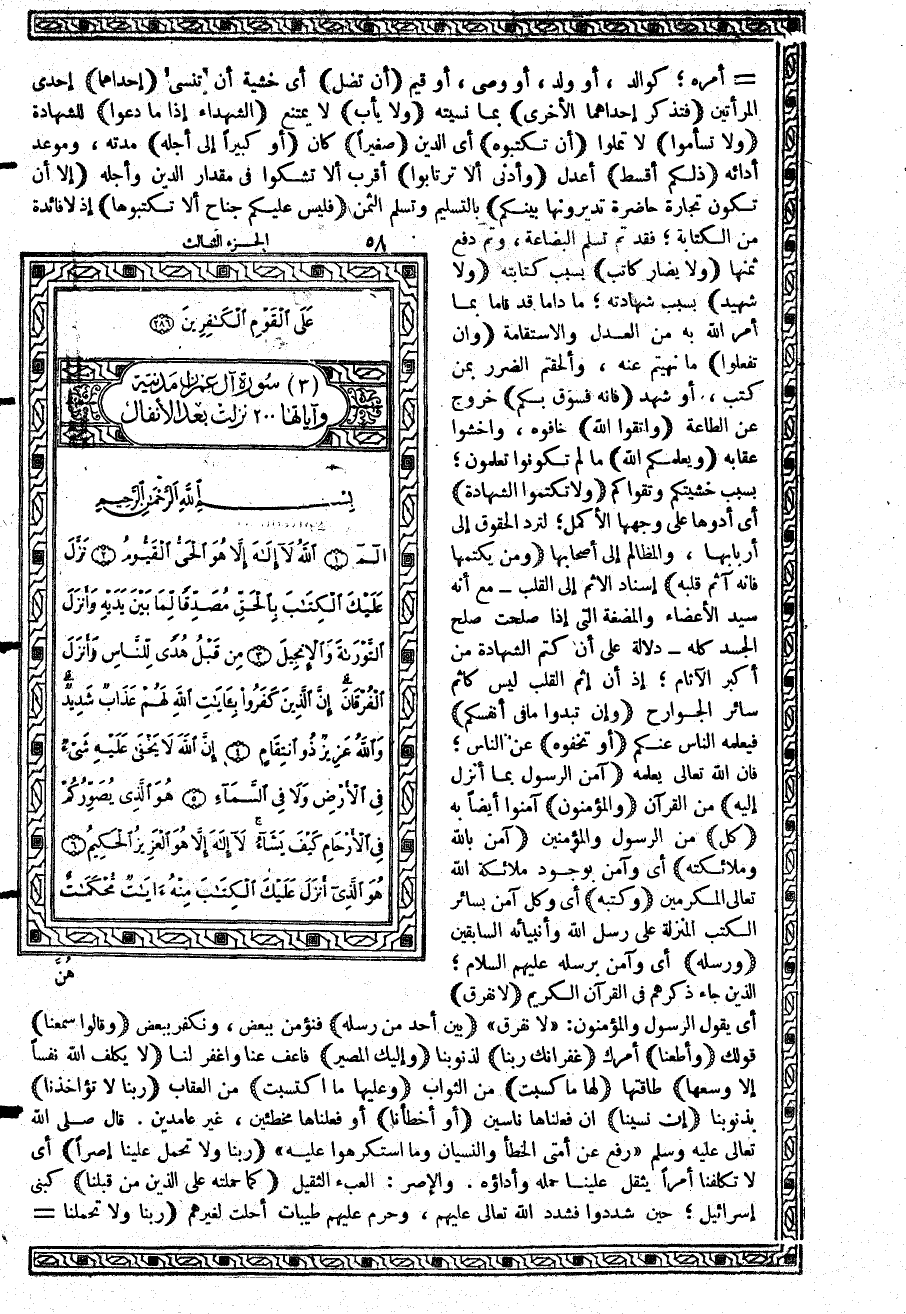 = أمره ؛ كوالد ، أو ولد ، أو وصى ، أو قيم (أن تضل) أى خشية أن تنسى (إحداهما) إحدى
المرأتين (فتذكر إحداهما الأخرى) بما نسيته (ولا يأب) لا يمتنع (الشهداء إذا ما دعوا) للشهادة
(ولا تسأموا) لا تملوا (أن تكتبوه) أى الدين (صغيراً) كان (أو كبيراً إلى أجله) مدته ، وموعد
أدائه (ذلكم أقسط) أعدل (وأدنى ألا ترتابوا) أقرب ألا تشكوا فى مقدار الدين وأجله (إلا أن
تكون تجارة حاضرة تديرونها بينكم) بالتسليم وتسلم الثمن (فليس عليكم جناح ألا تكتبوها) إذ لا فائدة
من الكتابة ؛ فقد تم تسلم البضاعة ، وتم دفع
ثمنها (ولا يضار كاتب) بسبب كتابته (ولا
شهيد) بسبب شهادته ؛ ما داما قد قاما بما
أمر الله به من العدل والاستقامة (وان
تفعلوا) ما نهيتم عنه ، وألحقتم الضرر بمن
كتب ، أو شهد (فانه فسوق بكم) خروج
عن الطاعة (واتقوا الله) خافوه ، واخشوا
عقابه (ويعلمكم الله) ما لم تكونوا تعلمون ؛
بسبب خشيتكم وتقواكم (ولا تكتموا الشهادة)
أى أدوها على وجهها الأكمل ؛ لترد الحقوق إلى
أربابها ، والمظالم إلى أصحابها (ومن يكتمها
فانه آثم قلبه) إسناد الاثم إلى القلب ــ مع أنه
سيد الأعضاء والمضغة التى إذا صلحت صلح
الجسد كله ــ دلالة على أن كتم الشهادة من
أكبر الآثام ؛ إذ أن إثم القلب ليس كاثم
سائر الجوارح (وإن تبدوا مافى أنفسكم)
فيعلمه الناس عنكم (أو تخفوه) عن الناس ؛
فان الله تعالى يعلمه (آمن الرسول بما أنزل
إليه) من القرآن (والمؤمنون) آمنوا أيضاً به
(كل) من الرسول والمؤمنين (آمن بالله
وملائكته) أى وآمن بوجود ملائكة الله
تعالى المكرمين (وكتبه) أى وكل آمن بسائر
الكتب المنزلة على رسل الله وأنبيائه السابقين
(ورسله) أى وآمن برسله عليهم السلام ؛
الذين جاء ذكرهم فى القرآن الكريم (لا نفرق)
٥٨ الجزء الثالث
عَلَى ٱلْقَوْمِ ٱلْكَٰفِرِينَ ٢٨٦
(٣) سورة آل عمران مدنية
وآياتها ٢٠٠ نزلت بعد الأنفال
بِسْمِ ٱللَّهِ ٱلرَّحْمَٰنِ ٱلرَّحِيمِ
الٓمٓ ١ ٱللَّهُ لَآ إِلَٰهَ إِلَّا هُوَ ٱلْحَىُّ ٱلْقَيُّومُ ٢ نَزَّلَ
عَلَيْكَ ٱلْكِتَٰبَ بِٱلْحَقِّ مُصَدِّقًا لِّمَا بَيْنَ يَدَيْهِ وَأَنزَلَ
ٱلتَّوْرَىٰةَ وَٱلْإِنجِيلَ ٣ مِن قَبْلُ هُدًى لِّلنَّاسِ وَأَنزَلَ
ٱلْفُرْقَانَ ۗ إِنَّ ٱلَّذِينَ كَفَرُوا۟ بِـَٔايَٰتِ ٱللَّهِ لَهُمْ عَذَابٌ شَدِيدٌ ۗ
وَٱللَّهُ عَزِيزٌ ذُو ٱنتِقَامٍ ٤ إِنَّ ٱللَّهَ لَا يَخْفَىٰ عَلَيْهِ شَىْءٌ
فِى ٱلْأَرْضِ وَلَا فِى ٱلسَّمَآءِ ٥ هُوَ ٱلَّذِى يُصَوِّرُكُمْ
فِى ٱلْأَرْحَامِ كَيْفَ يَشَآءُ ۚ لَآ إِلَٰهَ إِلَّا هُوَ ٱلْعَزِيزُ ٱلْحَكِيمُ ٦
هُوَ ٱلَّذِىٓ أَنزَلَ عَلَيْكَ ٱلْكِتَٰبَ مِنْهُ ءَايَٰتٌ مُّحْكَمَٰتٌ
هُنَّ
أى يقول الرسول والمؤمنون: «لا نفرق» (بين أحد من رسله) فنؤمن ببعض ، ونكفر ببعض (وقالوا سمعنا)
قولك (وأطعنا) أمرك (غفرانك ربنا) لذنوبنا (وإليك المصير) فاعف عنا واغفر لنا (لا يكلف الله نفساً
إلا وسعها) طاقتها (لها ما كسبت) من الثواب (وعليها ما اكتسبت) من العقاب (ربنا لا تؤاخذنا)
بذنوبنا (إن نسينا) ان فعلناها ناسين (أو أخطأنا) أو فعلناها مخطئين ، غير عامدين . قال صلى الله
تعالى عليه وسلم «رفع عن أمتى الخطأ والنسيان وما استكرهوا عليه» (ربنا ولا تحمل علينا إصراً) أى
لا تكلفنا أمراً يثقل علينا حمله وأداؤه . والإصر : العبء الثقيل (كما حملته على الذين من قبلنا) كبنى
إسرائيل ؛ حين شددوا فشدد الله تعالى عليهم ، وحرم عليهم طيبات أحلت لغيرهم (ربنا ولا تحملنا =